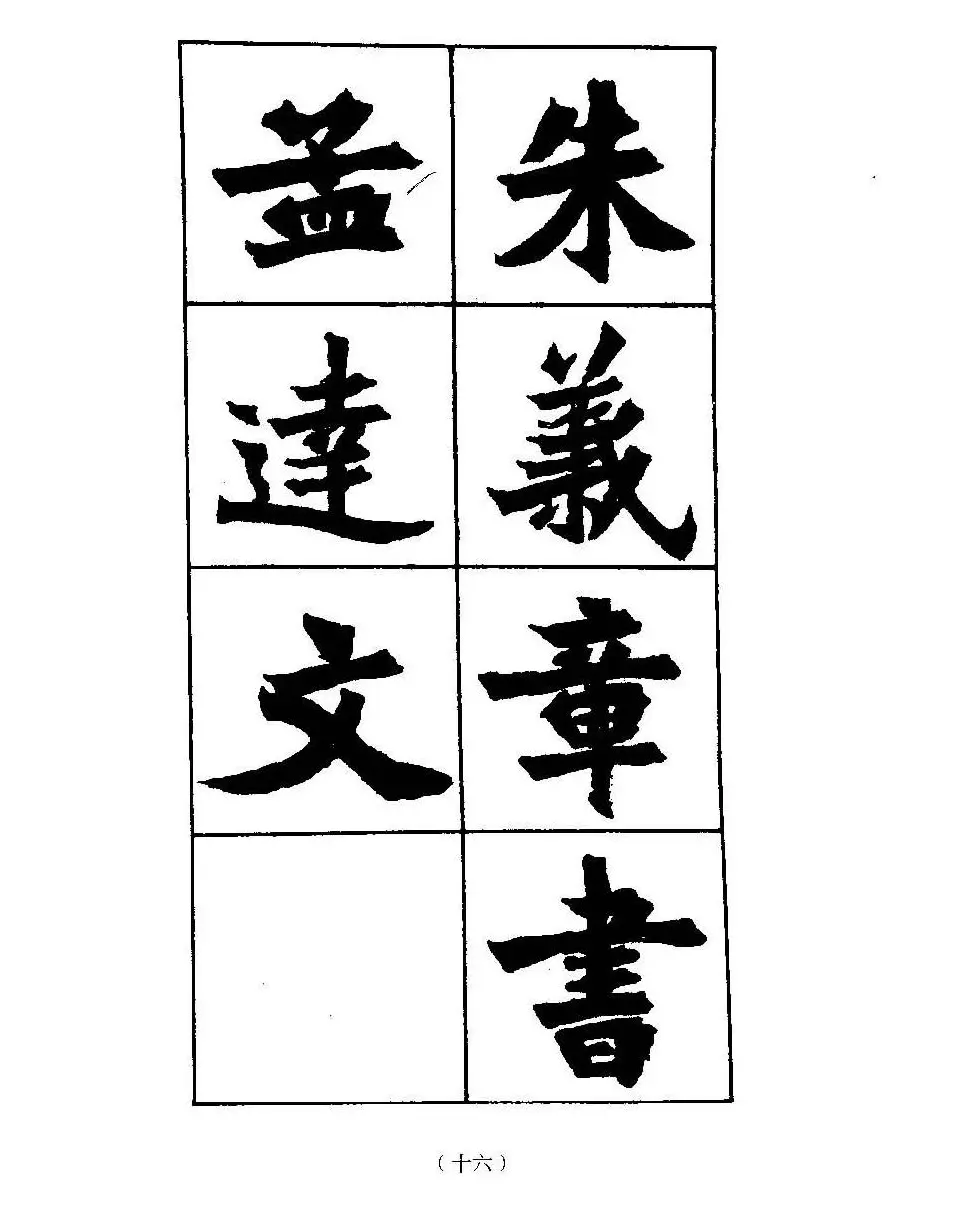 朱義章書
孟達文
（十六）